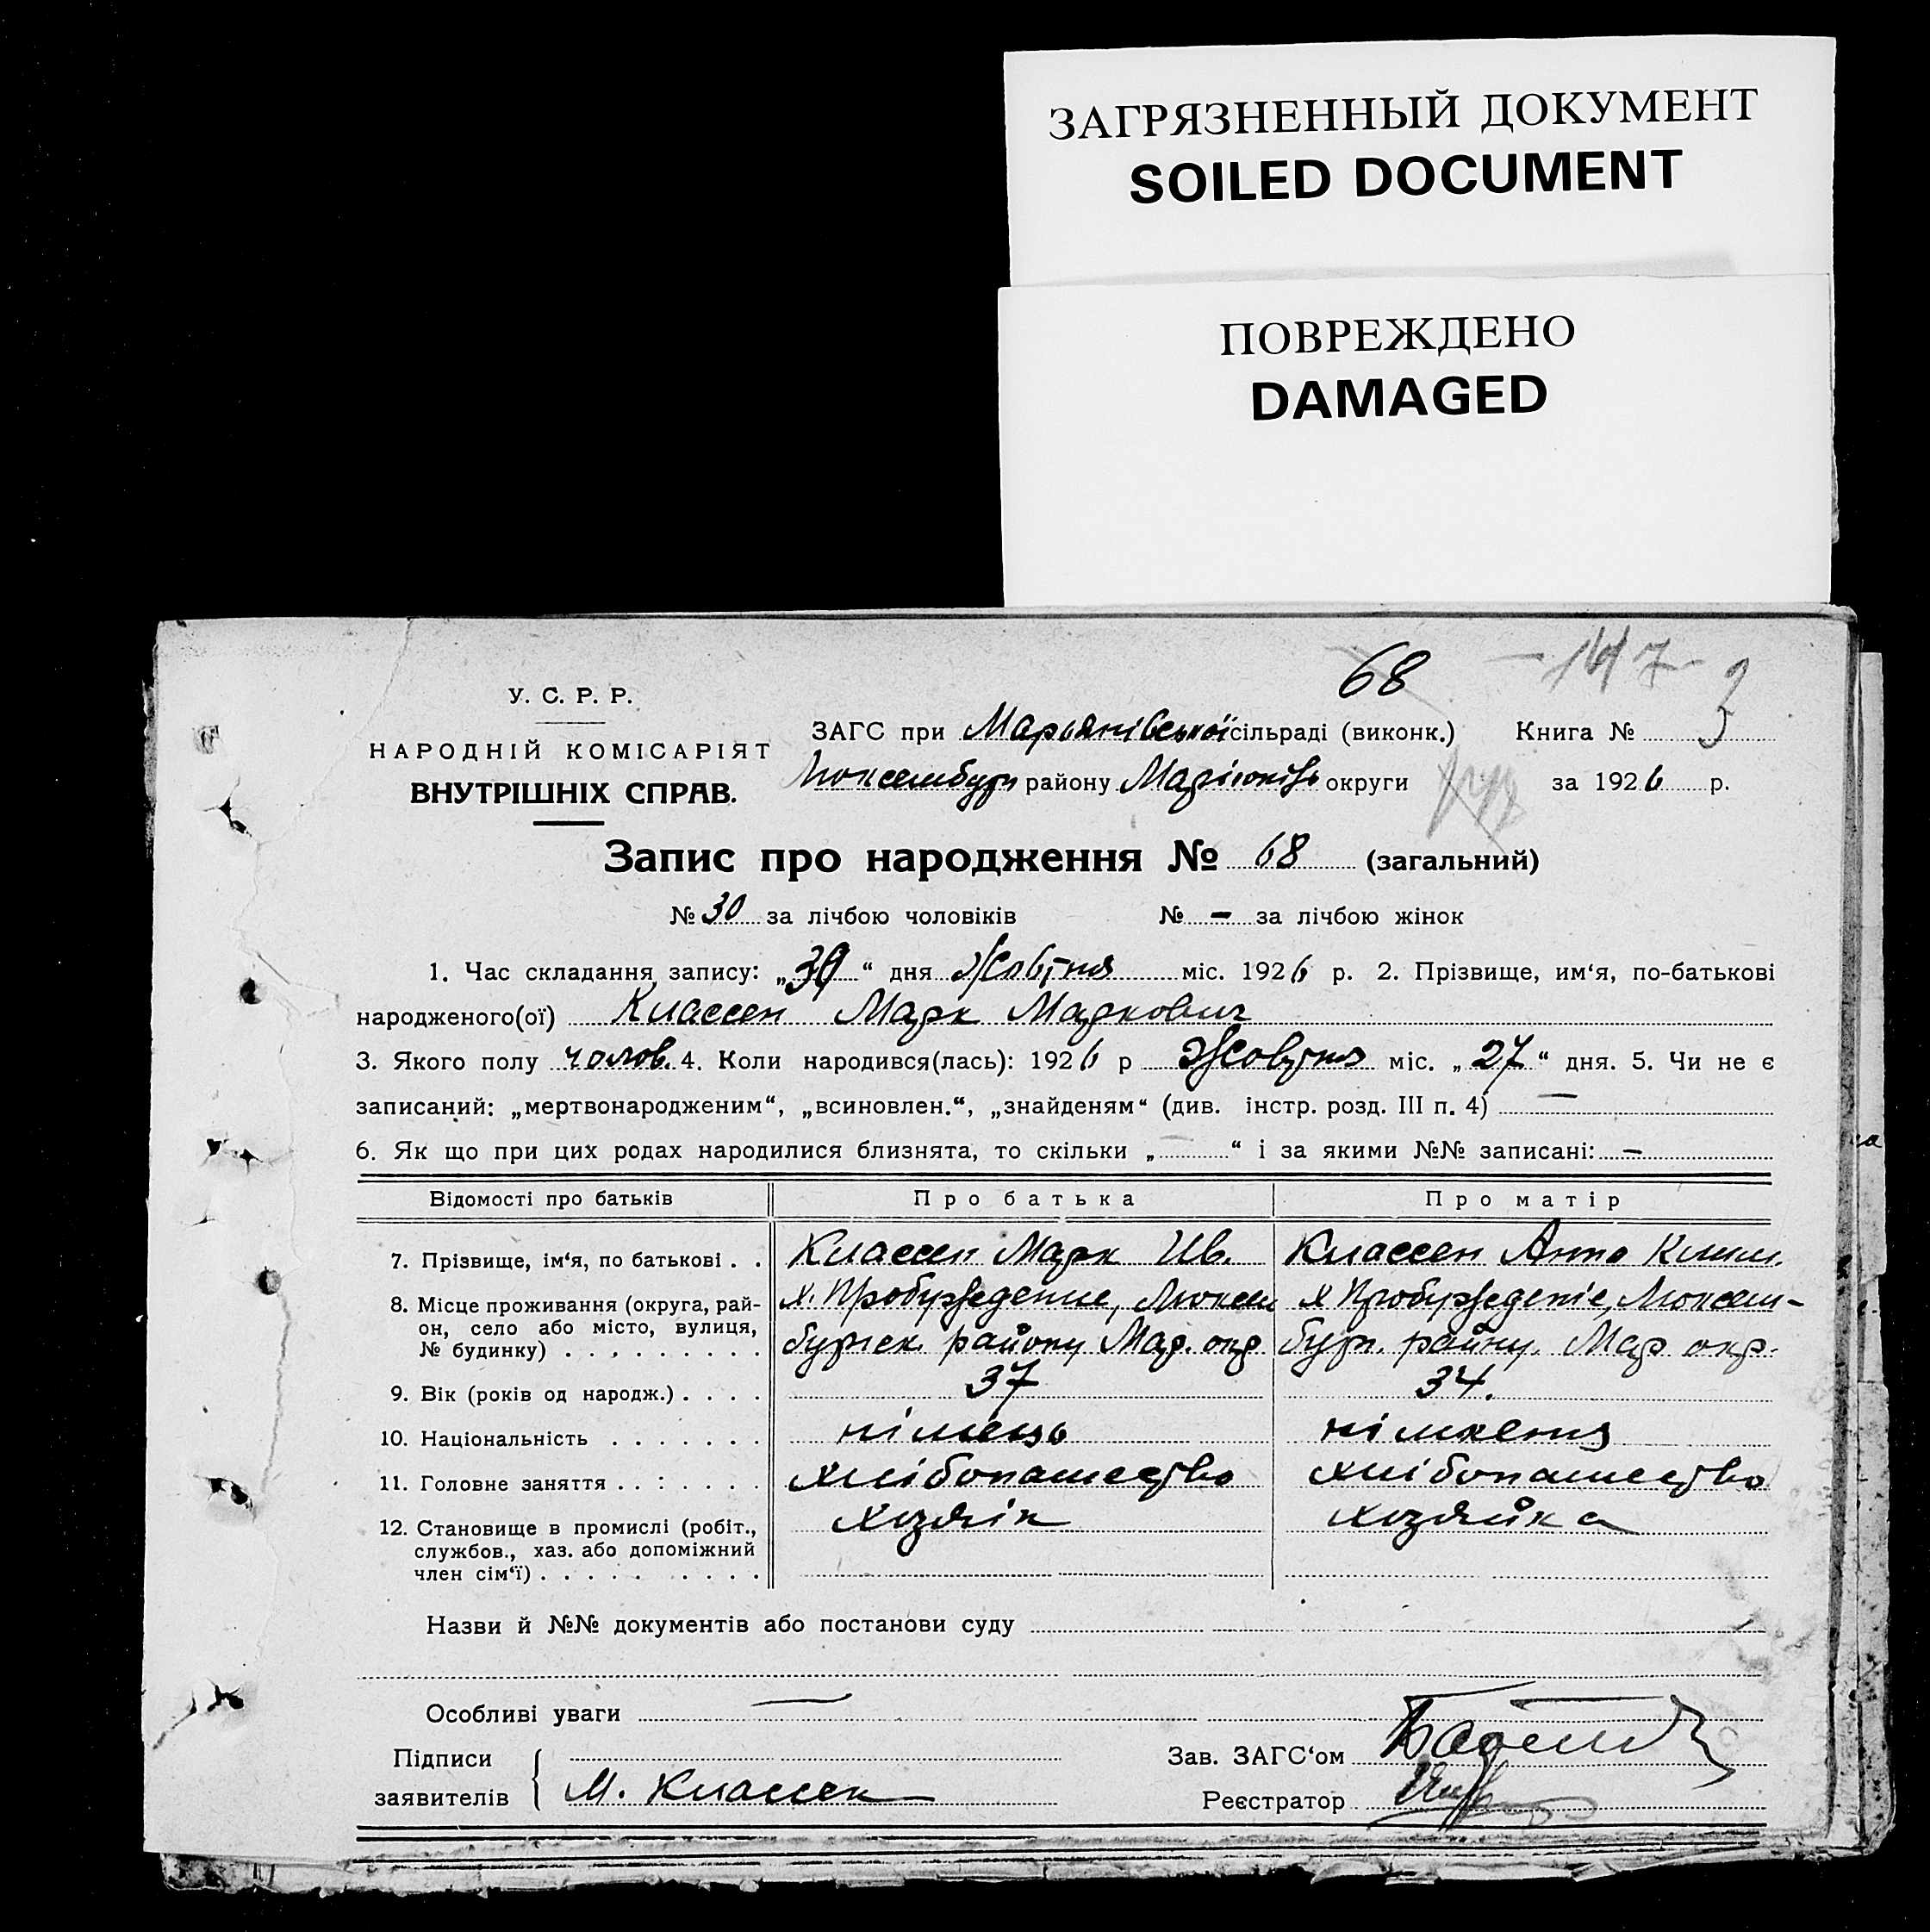 ЗАГРЯЗНЕННЫЙ ДОКУМЕНТ
SOILED DOCUMENT
ПОВРЕЖДЕНО
DAMAGED
68 -147- 3
У. С. Р. Р.
НАРОДНІЙ КОМІСАРІЯТ
ВНУТРІШНІХ СПРАВ.
ЗАГС при Марьянівської сільраді (виконк.) Книга №
Люксембург району Маріюпіль округи за 1926 р.
Запис про народження № 68 (загальний)
№ 30 за лічбою чоловіків № - за лічбою жінок
1. Час складання запису: „30“ дня Жовтня міс. 1926 р. 2. Прізвище, им‘я, по-батькові
народженого(ої) Классен Марк Маркович
3. Якого полу чолов. 4. Коли народився(лась): 1926 р Жовтня міс. „27“ дня. 5. Чи не є
записаний: „мертвонародженим“, „всиновлен.“, „знайденям“ (див. інстр. розд. III п. 4) —
6. Як що при цих родах народилися близнята, то скільки „ “ і за якими №№ записані: —
Відомості про батьків Про батька Про матір
7. Прізвище, ім‘я, по батькові . . Классен Марк Ив. Классен Анна
8. Місце проживання (округа, рай- х. Пробуждение, Люксем х Пробужденіе, Люксем-
он, село або місто, вулиця, бургск. району Мар. окр бург. району. Мар окр.
№ будинку) . . . . . . . . .
9. Вік (років од народж.) . . . . 37 34.
10. Національність . . . . . . . німець німкеня
11. Головне заняття . . : . . . . хлібопашество хлібопашество
12. Становище в промислі (робіт., хозяін хозяйка
службов., хаз. або допоміжний
член сім‘ї) . . . . . . . . . .
Назви й №№ документів або постанови суду
Особливі уваги —
Підписи Зав. ЗАГС‘ом
заявителів М. Классен Реєстратор